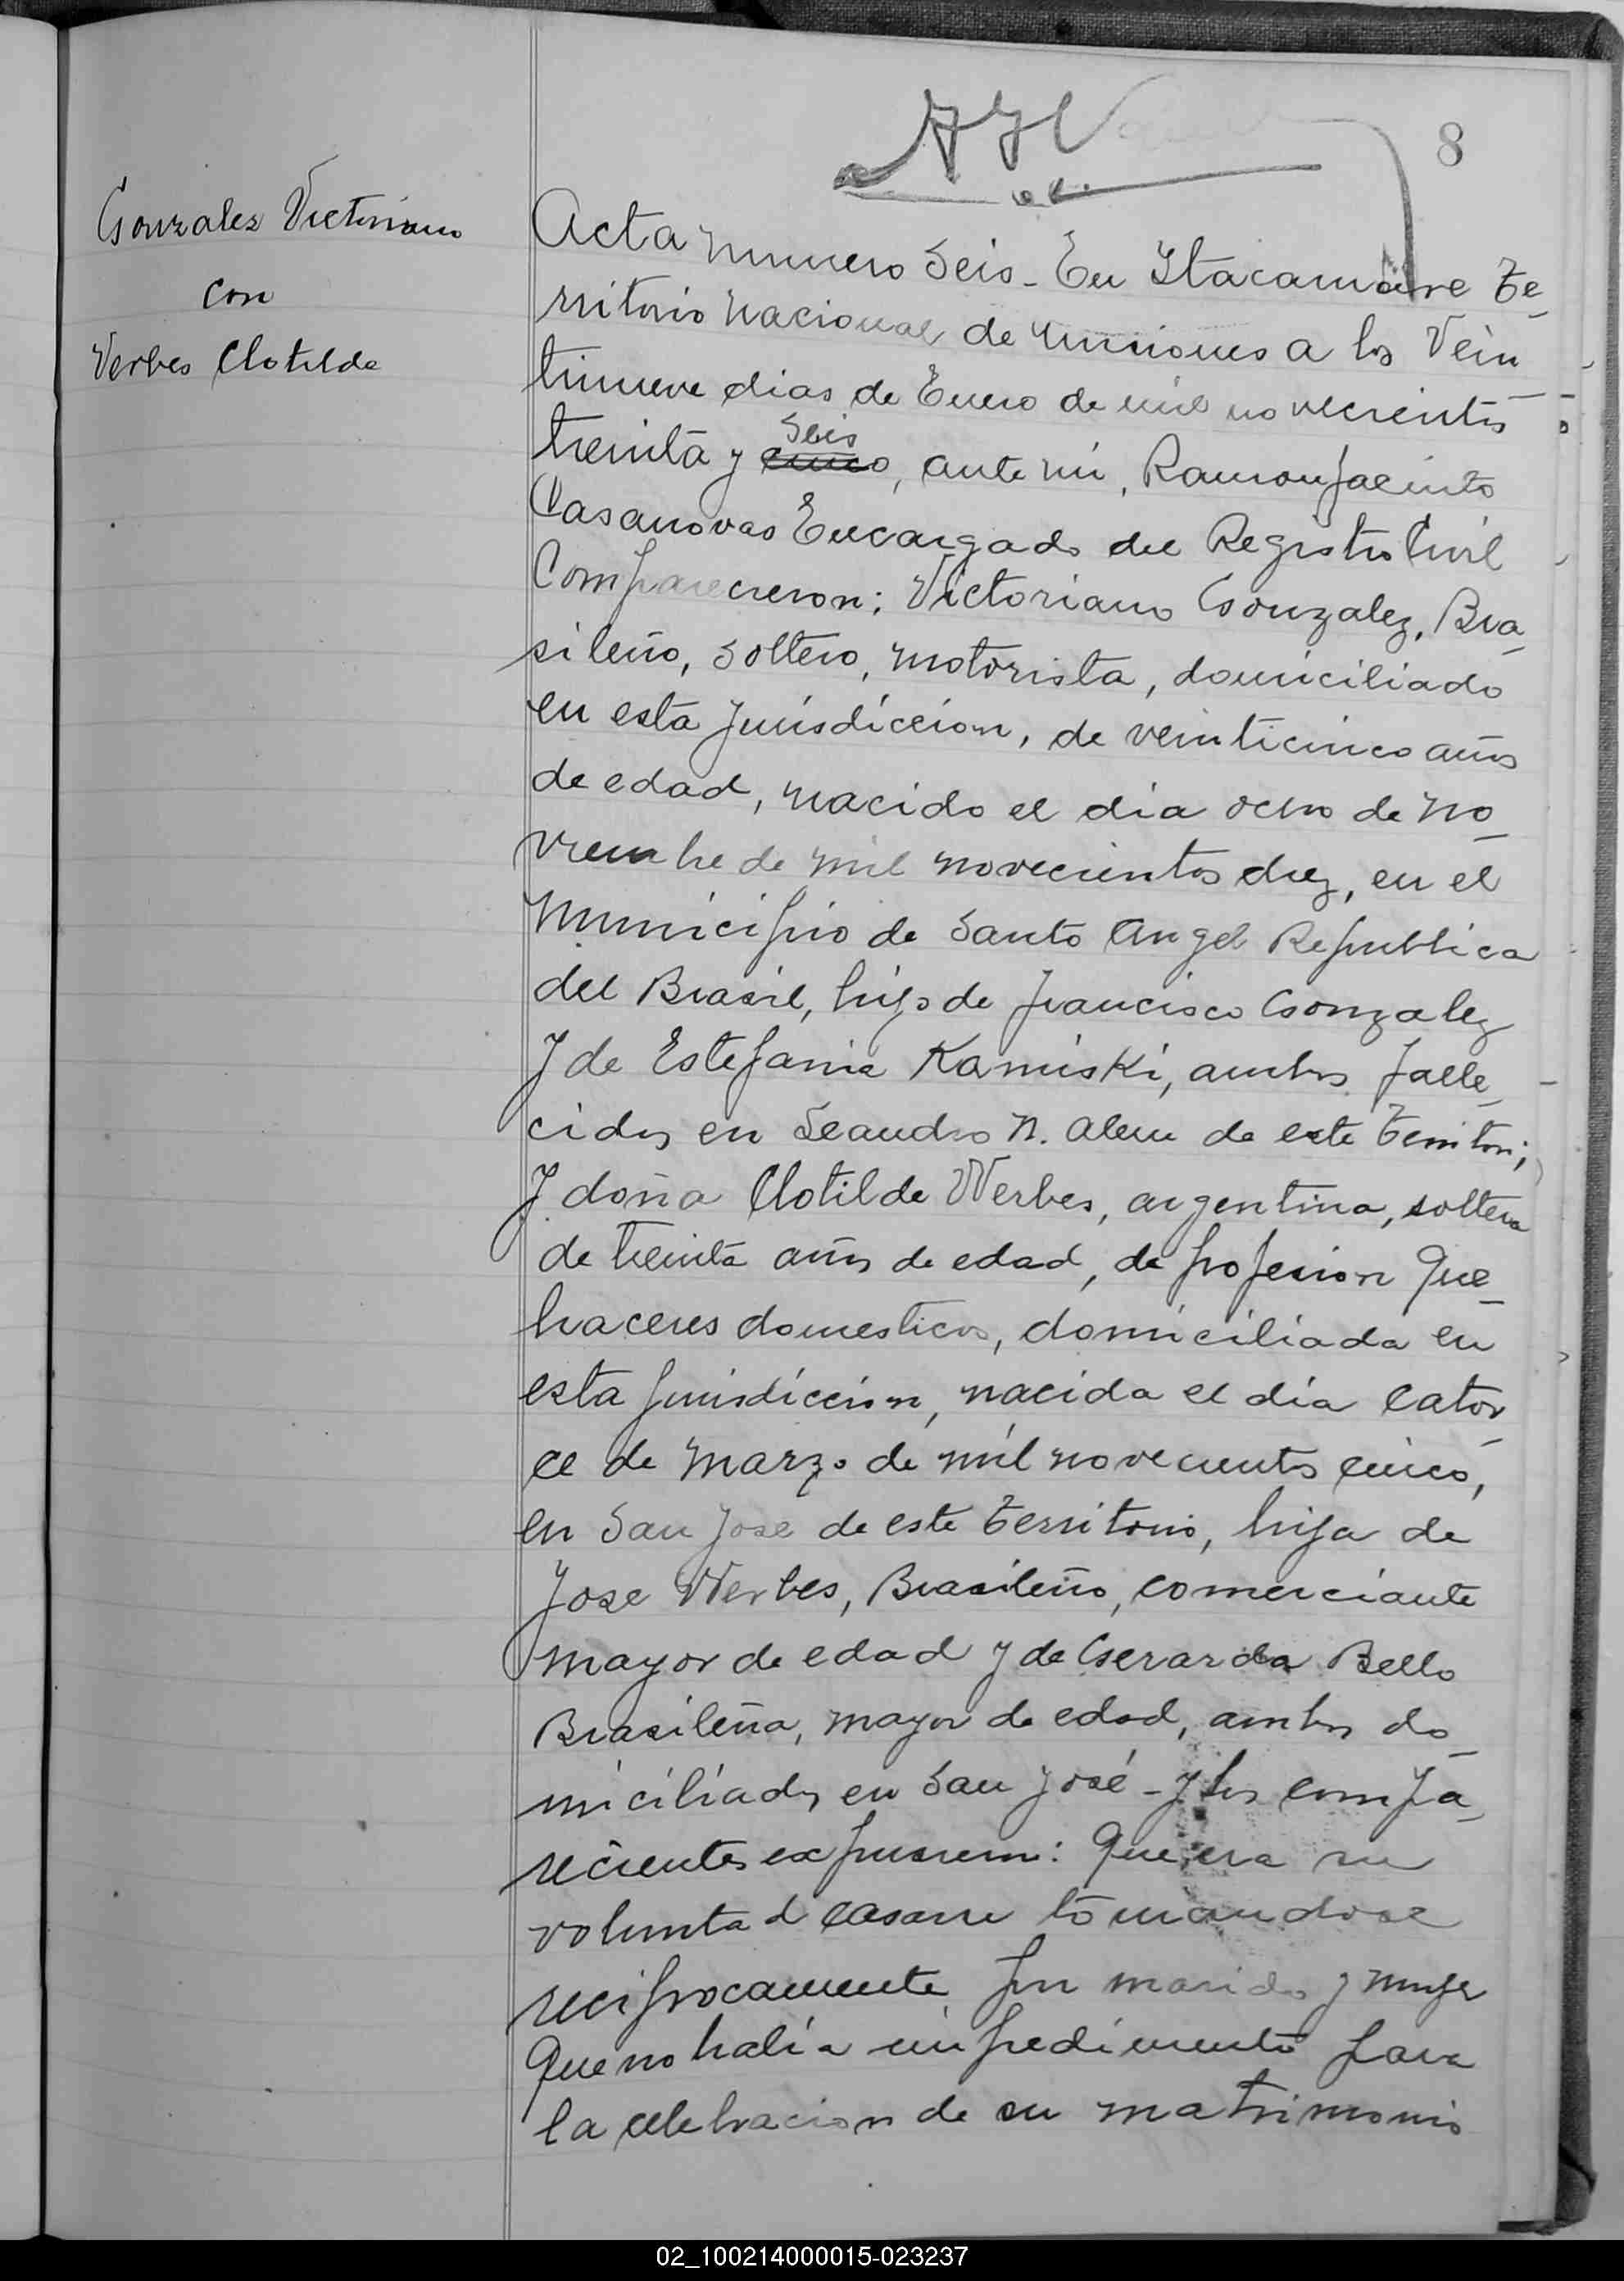 8
Gonzales Victoriano
con
Verbes Clotilde
Acta numero Seis - En Itacaruare Te-
rritorio Nacional de Misiones a los Vein-
tinueve dias de Enero de mil novecientos
treinta y cinco Seis, ante mi, Ramon Jacinto
Casanovas Encargado del Registro Civil
Comparecieron: Victoriano Gonzalez, Bra-
sileño, soltero, motorista, domiciliado
en esta jurisdiccion, de veinticinco años
de edad, nacido el dia ocho de No-
viembre de mil novecientos diez, en el
Municipio de Santo Angel Republica
del Brasil, hijo de Francisco Gonzalez
y de Estefania Kamiski, ambos falle-
cidos en Leandro N. Alem de este Territori;
y doña Clotilde Werbes, argentina, soltera
de treinta años de edad, de profesion Que-
haceres domesticos, domiciliada en
esta jurisdiccion, nacida el dia cator-
ce de Marzo de mil novecientos cinco,
en San Jose de este Territorio, hija de
Jose Werbes, Brasileño, comerciante
mayor de edad y de Gerarda Bello
Brasileña, mayor de edad, ambos do-
miciliados en San José - y los compa-
recientes expusieron: Que era su
voluntad casarse tomandose
reciprocamente por marido y mujer
Que no habia impedimento para
la celebracion de su matrimonio
02_100214000015-023237